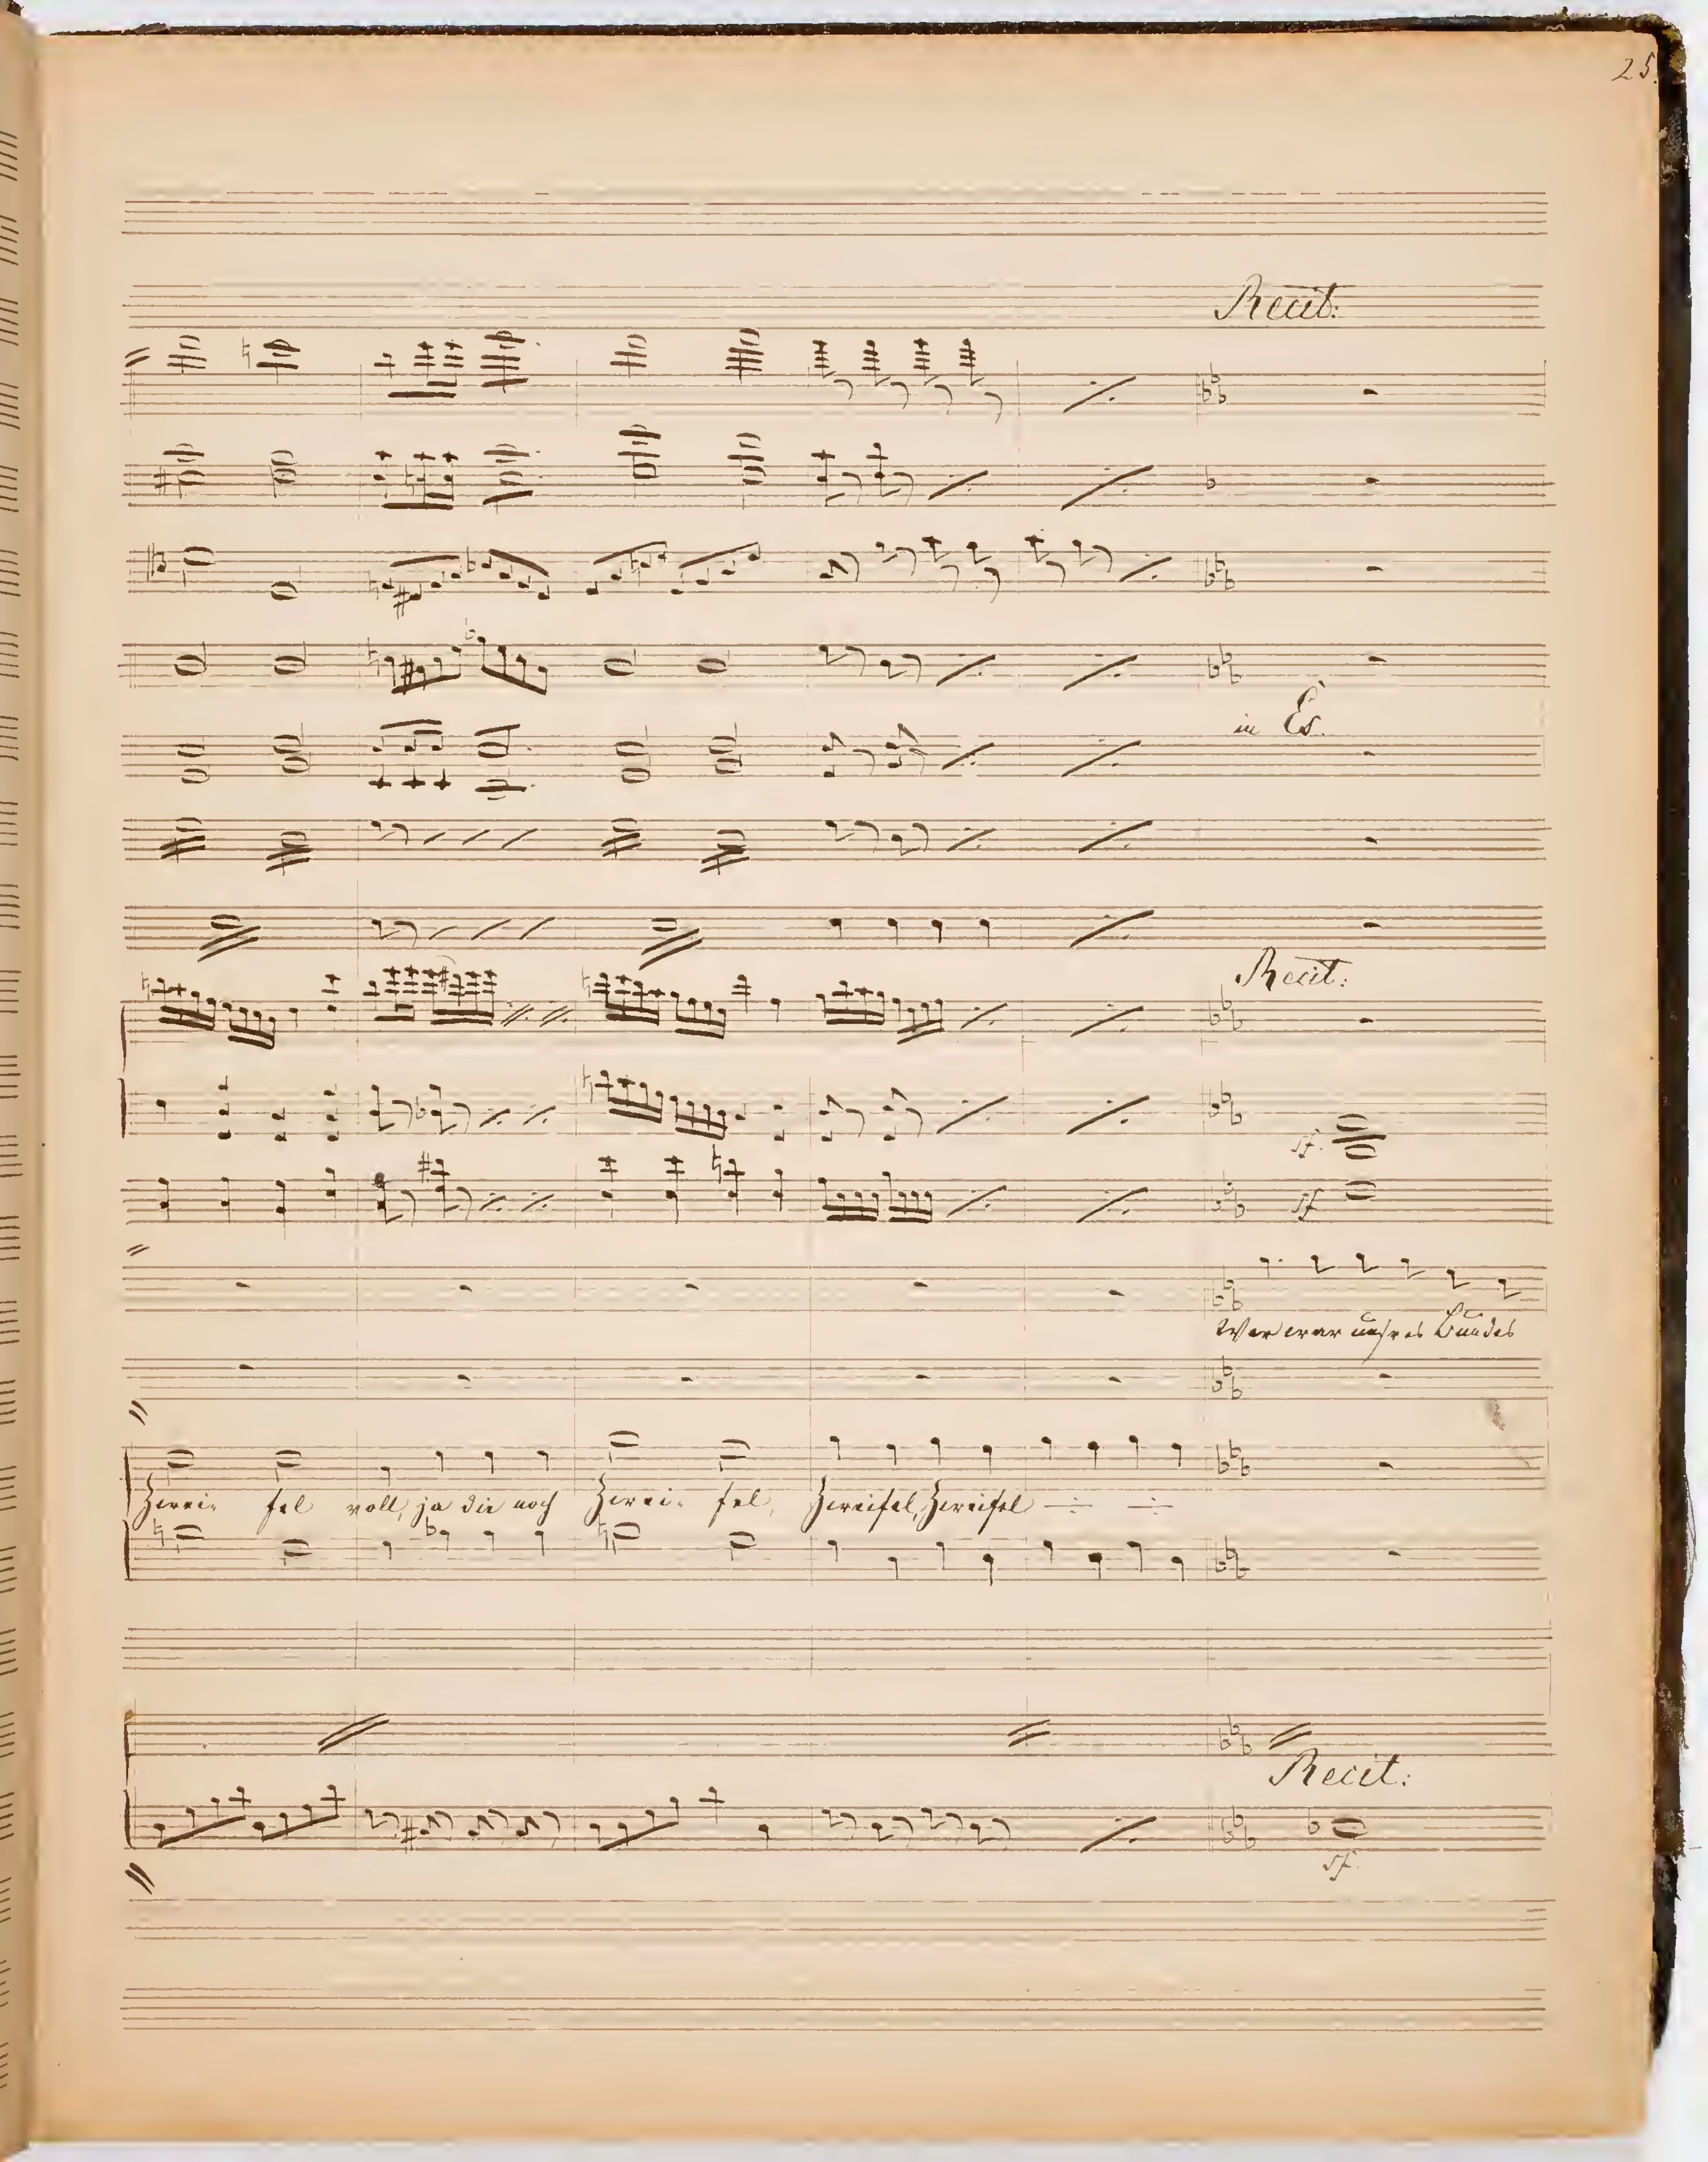 25.
Recit:
in Es.
Recit:
sf.
sf
Wer war unsres Bundes
Zwei- fel voll, ja die noch Zwei- fel, Zweifel, Zweifel
Recit:
sf.